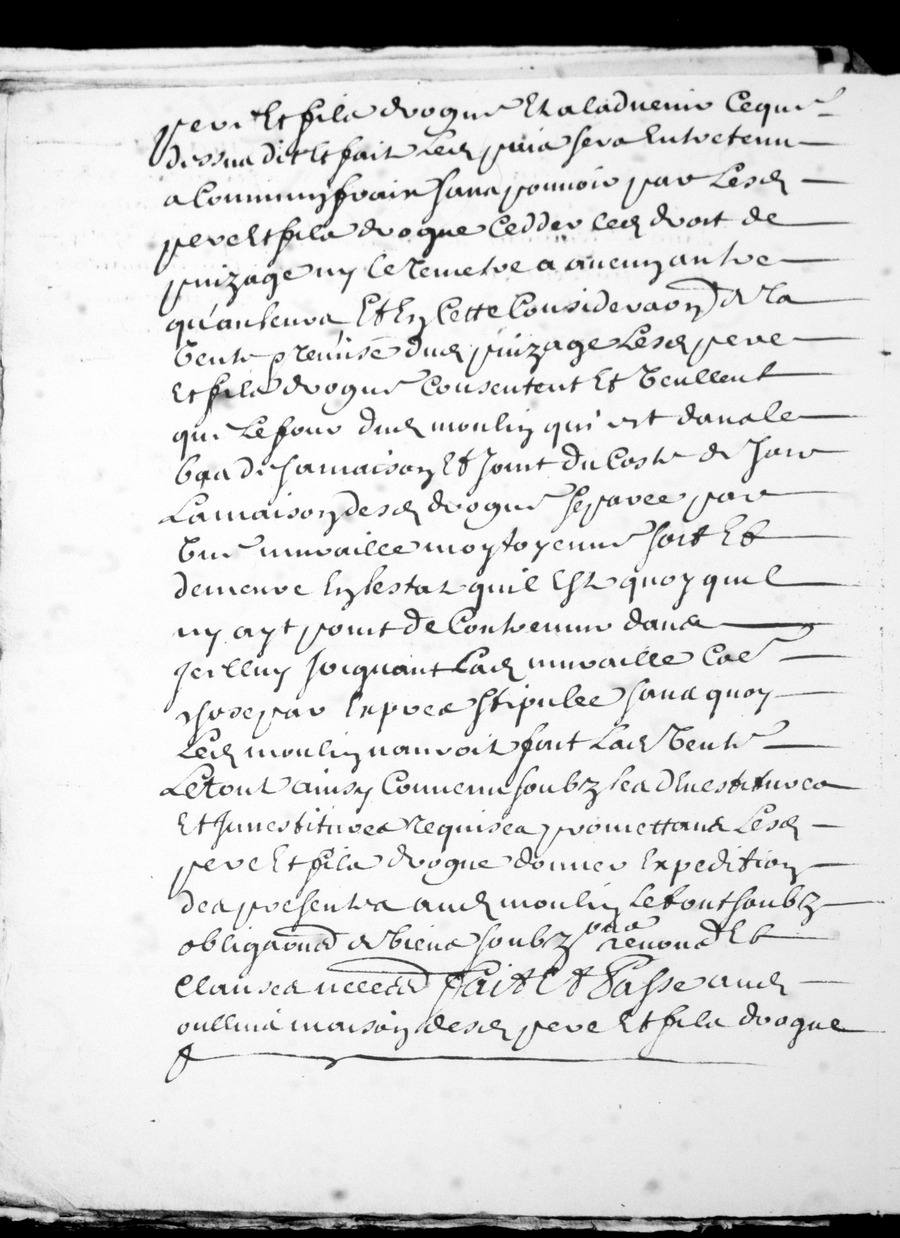 pere et fils drogue et a ladvenir ce que
dessus dit et fait led puis sera entretenu
a commung fraix sans pouvoir par lesd
pere et fils drogue cedder led droit de
puizage ny le remetre a aucung autre
qu'anseurs et en cette considera͠on de la
vente remise dud puizage lesd pere
et fils drogue consentent et veullent
que le four dud moulin qui est dans le
bas de sa maison et joint du coste de
la maison desd drogue separee par
une muraille moytoyenne soit et
demeure en lestat quil est quoy quil
ny ayt point de contremur dans
jcelluy joignant lad muraille
chose par expres stipulee sans quoy
led moulin nauroit fait lad vente
le tout ainsy convenu soubz les d'Investitures
et Investitures requises promettans lesd
pere et fils drogue donner expedition
des presentes aud moulin le tout soubz
obliga͠ons de biens soubz renon͠d et
clauses necess͠es fait et passe aud
oullins maison desd pere et fils drogue